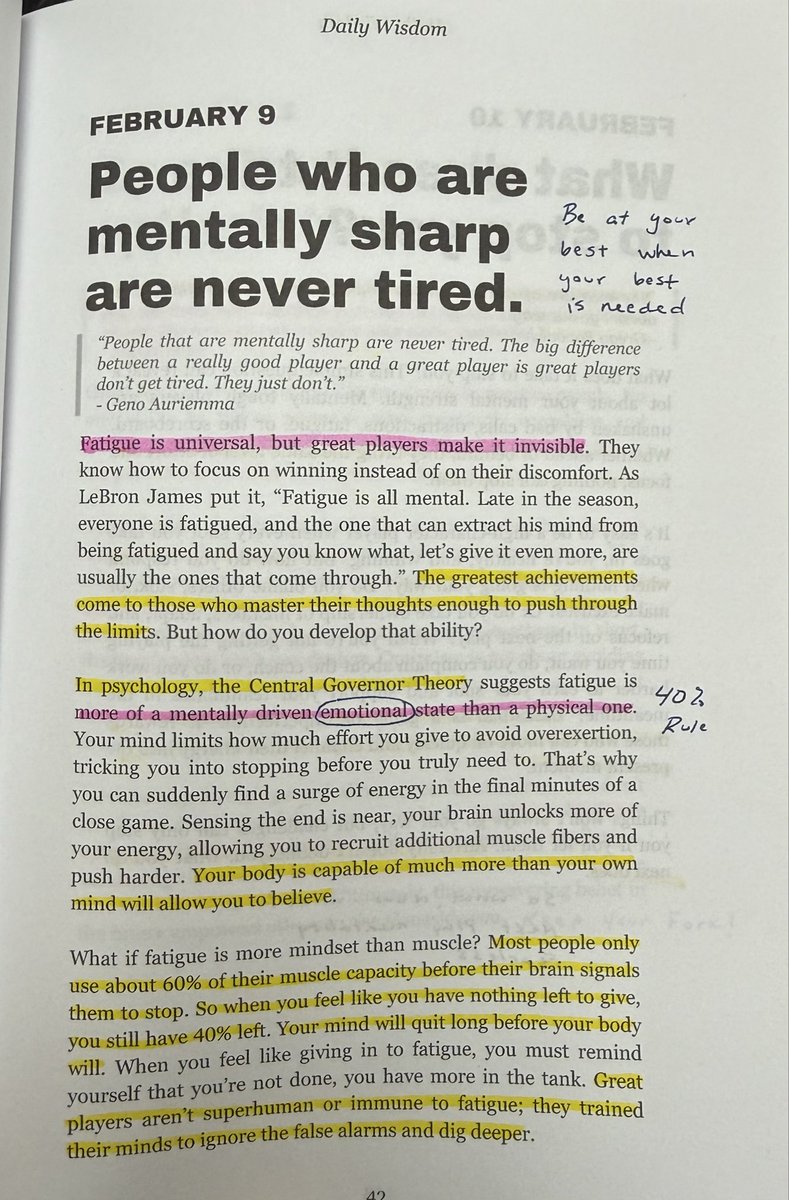 Daily Wisdom
FEBRUARY 9
People who are
mentally sharp
are never tired.
Be at your
best when
your best
is needed
“People that are mentally sharp are never tired. The big difference
between a really good player and a great player is great players
don’t get tired. They just don’t.”
- Geno Auriemma
Fatigue is universal, but great players make it invisible. They
know how to focus on winning instead of on their discomfort. As
LeBron James put it, “Fatigue is all mental. Late in the season,
everyone is fatigued, and the one that can extract his mind from
being fatigued and say you know what, let’s give it even more, are
usually the ones that come through.” The greatest achievements
come to those who master their thoughts enough to push through
the limits. But how do you develop that ability?
In psychology, the Central Governor Theory suggests fatigue is
more of a mentally driven emotional state than a physical one.
40%
Rule
Your mind limits how much effort you give to avoid overexertion,
tricking you into stopping before you truly need to. That’s why
you can suddenly find a surge of energy in the final minutes of a
close game. Sensing the end is near, your brain unlocks more of
your energy, allowing you to recruit additional muscle fibers and
push harder. Your body is capable of much more than your own
mind will allow you to believe.
What if fatigue is more mindset than muscle? Most people only
use about 60% of their muscle capacity before their brain signals
them to stop. So when you feel like you have nothing left to give,
you still have 40% left. Your mind will quit long before your body
will. When you feel like giving in to fatigue, you must remind
yourself that you’re not done, you have more in the tank. Great
players aren’t superhuman or immune to fatigue; they trained
their minds to ignore the false alarms and dig deeper.
42